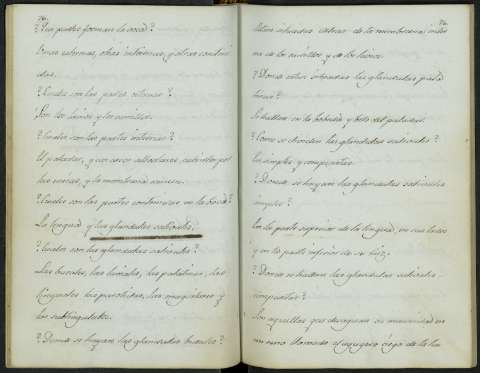 76.
¿Que partes forman la boca?
Unas externas, otras internas, y otras contenidas.
¿Cuales son las partes externas?
Son los labios y los carrillos.
¿Cuales son las partes internas?
El paladar, y los arcos alveolares, cubiertos por
las encias, y la membrana comun.
¿Cuales son las partes contenidas en la boca?
La lengua y las glandulas salivales.
¿Cuales son las glandulas salivales?
Las bucales, las labiales, las palatinas, las
linguales, las parotidas, las maxilares y
las sublinguales.
¿Donde se hayan las glandulas bucales?
situadas detras de la membrana
de los carrillos y de los labios.
¿Donde estan situadas las glandulas palatinas?
Se hallan en la bobeda y belo del paladar.
¿Como se dividen las glandulas salivales?
En simples y compuestas.
¿Donde se hayan las glandulas salivales
simples?
En la parte superior de la lengua, en sus lados
y en la parte inferior de
¿Donde se hallan las glandulas salivales
compuestas?
Son aquellas que
llamado el agugero ciego de la